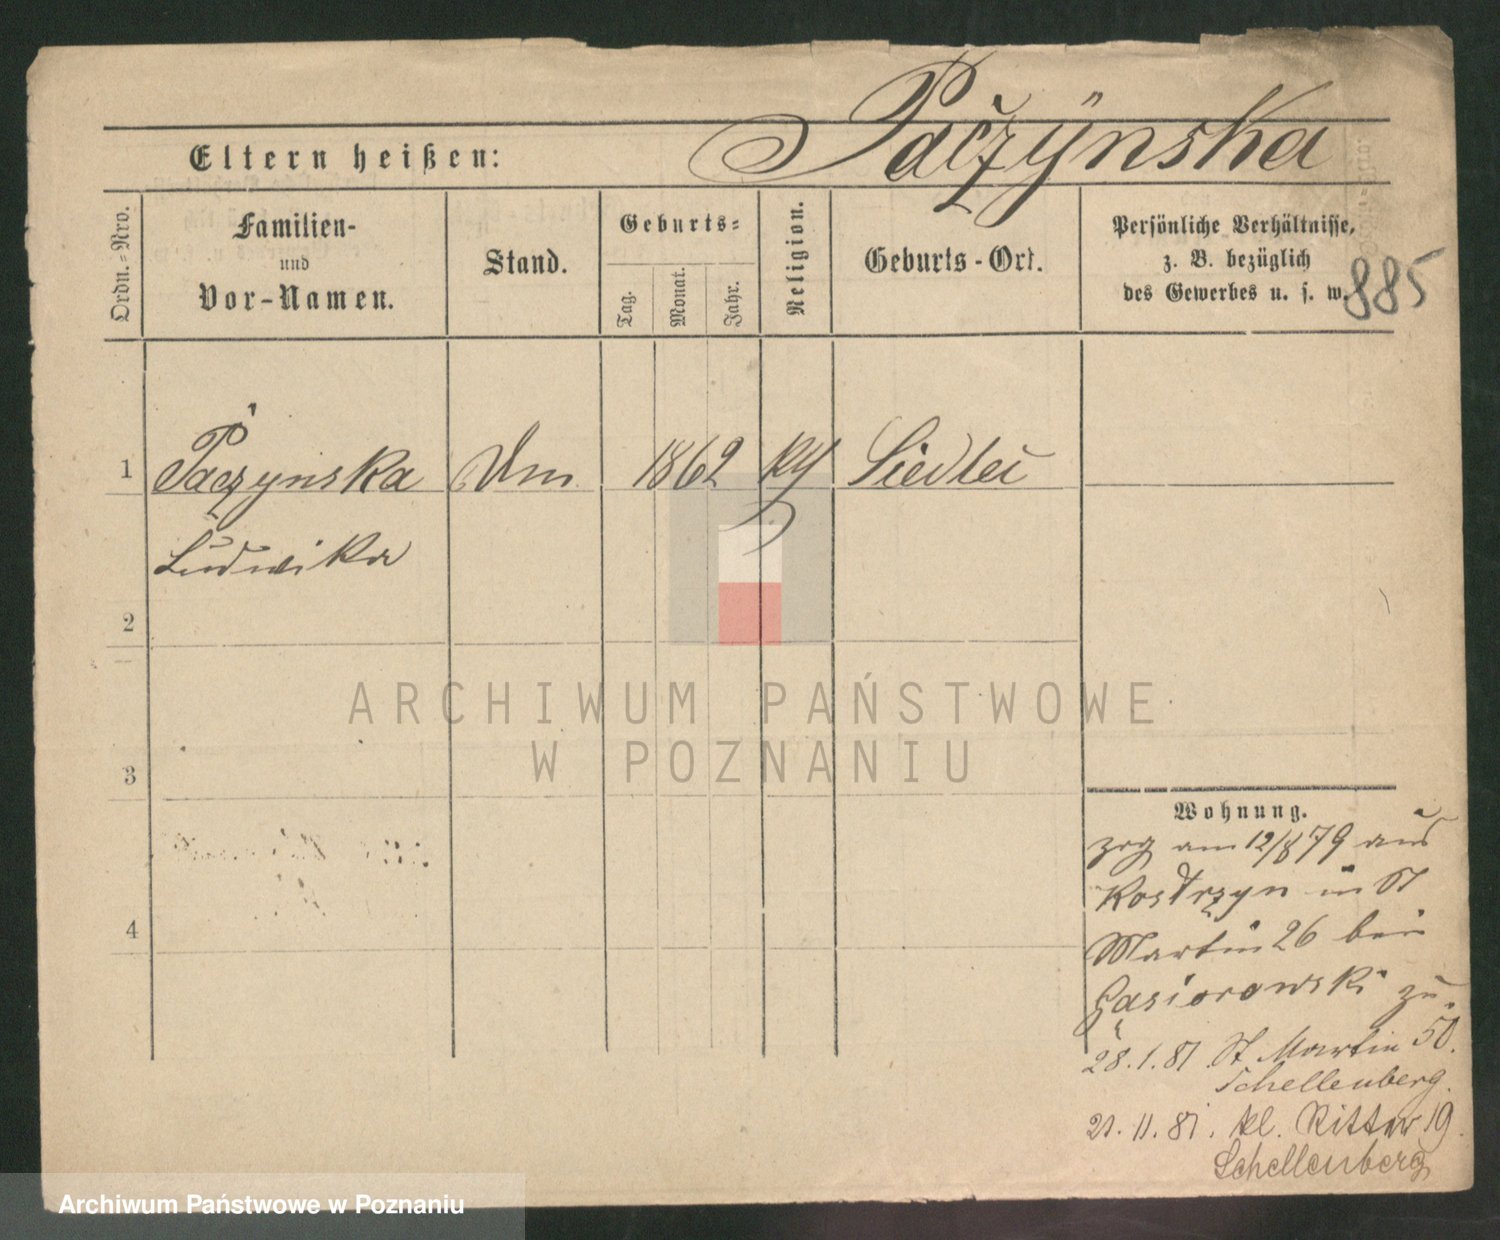 Pačzÿnska
Eltern heißen:
Ordn.=Nro.
Familien-
und
Vor-Namen.
Stand.
Geburts=
Tag.
Monat.
Jahr.
Religion.
Geburts-Ort.
Persönliche Verhältnisse,
z. B. bezüglich
des Gewerbes u. s. w.
885
1 Paczynska 1862 Siedlec
Ludwika
2
3
4
ARCHIWUM PAŃSTWOWE
W POZNANIU
Wohnung.
zog am 12/8 79 aus
Kostrzyn in St
Martin 26 bei
Gasiorowski zu.
28.1.81. St. Martin 50.
Schellenberg.
21.11.81. kl. Ritter 19.
Schellenberg
Archiwum Państwowe w Poznaniu